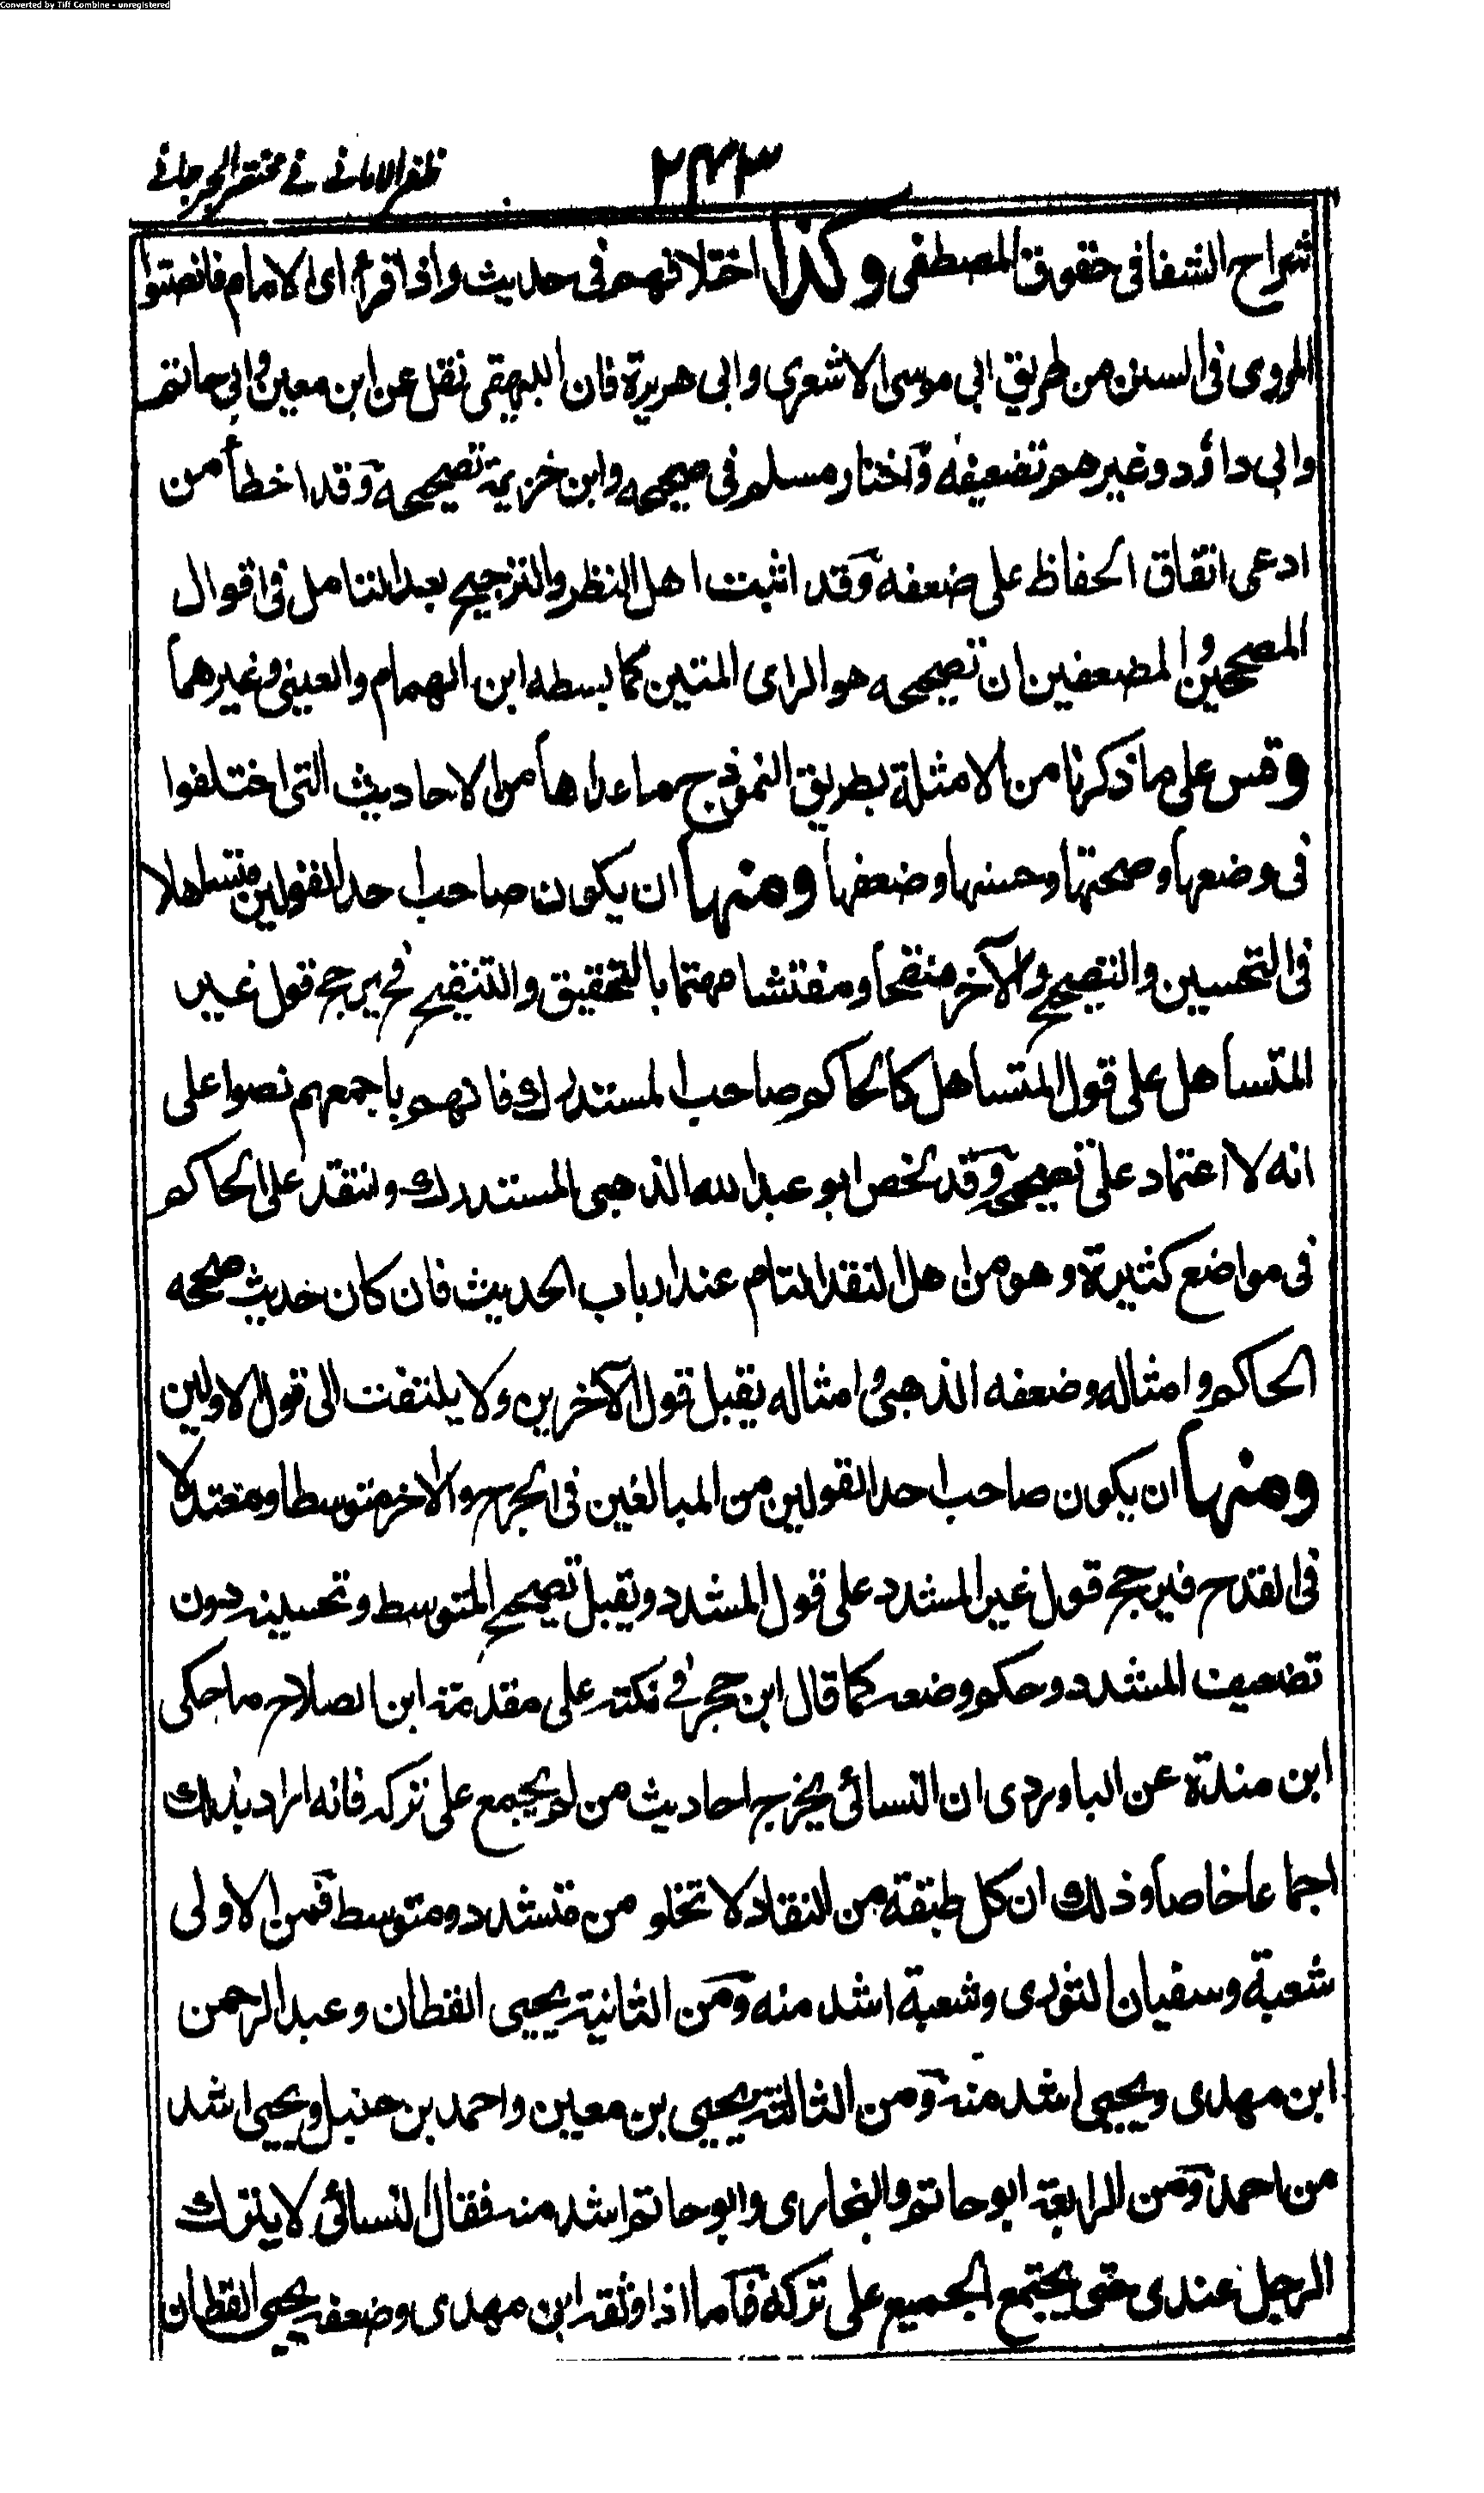 Converted by Tiff Combine - unregistered
ظفر الامانی فی مختصر الجرجانی
۲۴۳
شراح الشفا فی حقوق المصطفی وکذا اختلافهم فی حدیث واذا قرء ای الامام فانصتوا
المروی فی السنن من طریق ابی موسی الاشعری وابی هریرة فان البیهقی نقل عن ابن معین وابی حاتم
وابی داؤد وغیرهم تضعیفه وآختار مسلم فی صحیحه وابن خزیمة تصحیحه وقد اخطأ من
ادعی اتفاق الحفاظ علی ضعفه وقد اثبت اهل النظر والترجیح بعد التامل فی اقوال
المصححین والمضعفین ان تصحیحه هو الرای المتین کما بسطه ابن الهمام والعینی وغیرهما
وقس علی ما ذکرنا من الامثلة بطریق النموذج ما عداها من الاحادیث التی اختلفوا
فی وضعها وصحتها وحسنها وضعفها ومنها ان یکون صاحب احد القولین متساهلا
فی التحسین والتصحیح والآخر منقحا ومفتشا مهتما بالتحقیق والتنقیح فح یرجح قول غیر
المتساهل علی قول المتساهل کالحاکم صاحب المستدرك فانهم باجمعهم نصوا علی
انه لا اعتماد علی تصحیحه وقد لخص ابو عبد الله الذهبی المستدرك وانتقد علی الحاکم
فی مواضع کثیرة وهو من اهل النقد التام عند ارباب الحدیث فان کان حدیث صححه
الحاکم وامثاله وضعفه الذهبی وامثاله یقبل قول الآخرین ولا یلتفت الی قول الاولین
ومنها ان یکون صاحب احد القولین من المبالغین فی الجرح والآخر متوسطا ومعتدلا
فی القدح فیرجح قول غیر المشدد علی قول المشدد ویقبل تصحیح المتوسط وتحسینه دون
تضعیف المشدد وحکم وضعه کما قال ابن حجر فی نکته علی مقدمة ابن الصلاح ما حکی
ابن مندة عن الباوردی ان النسائی یخرج احادیث من لم یجمع علی ترکه فانه اراد بذلك
اجماعا خاصا وذلك ان کل طبقة من النقاد لا تخلو من متشدد ومتوسط فمن الاولی
شعبة وسفیان الثوری وشعبة اشد منه ومن الثانیة یحیی القطان وعبد الرحمن
ابن مهدی ویحیی اشد منه ومن الثالثة یحیی بن معین واحمد بن حنبل ویحیی اشد
من احمد ومن الرابعة ابو حاتم والبخاری وابو حاتم اشد منه فقال النسائی لا یترك
الرجل عندی حتی یجتمع الجمیع علی ترکه فاما اذا وثقه ابن مهدی وضعفه یحیی القطان